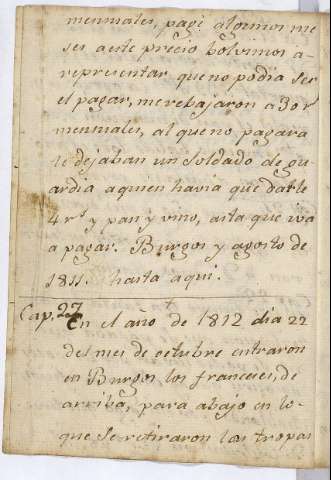 mensuales, pagé algunos me
ses a este precio bolvimos a-
representar que no podia ser
el pagar, me rebajaron a 30 r.s
mensuales, al que no pagara
le dejaban un soldado de gu
ardia a quien havia que darle
4 r.s y pan y vino, asta que iva
a pagar. Burgos y agosto de
1811. hasta aqui.
Cap. 27 +
En el año de 1812 dia 22
del mes de octubre entraron
en Burgos los franceses, de
arriba, para abajo en lo-
que se retiraron las tropas